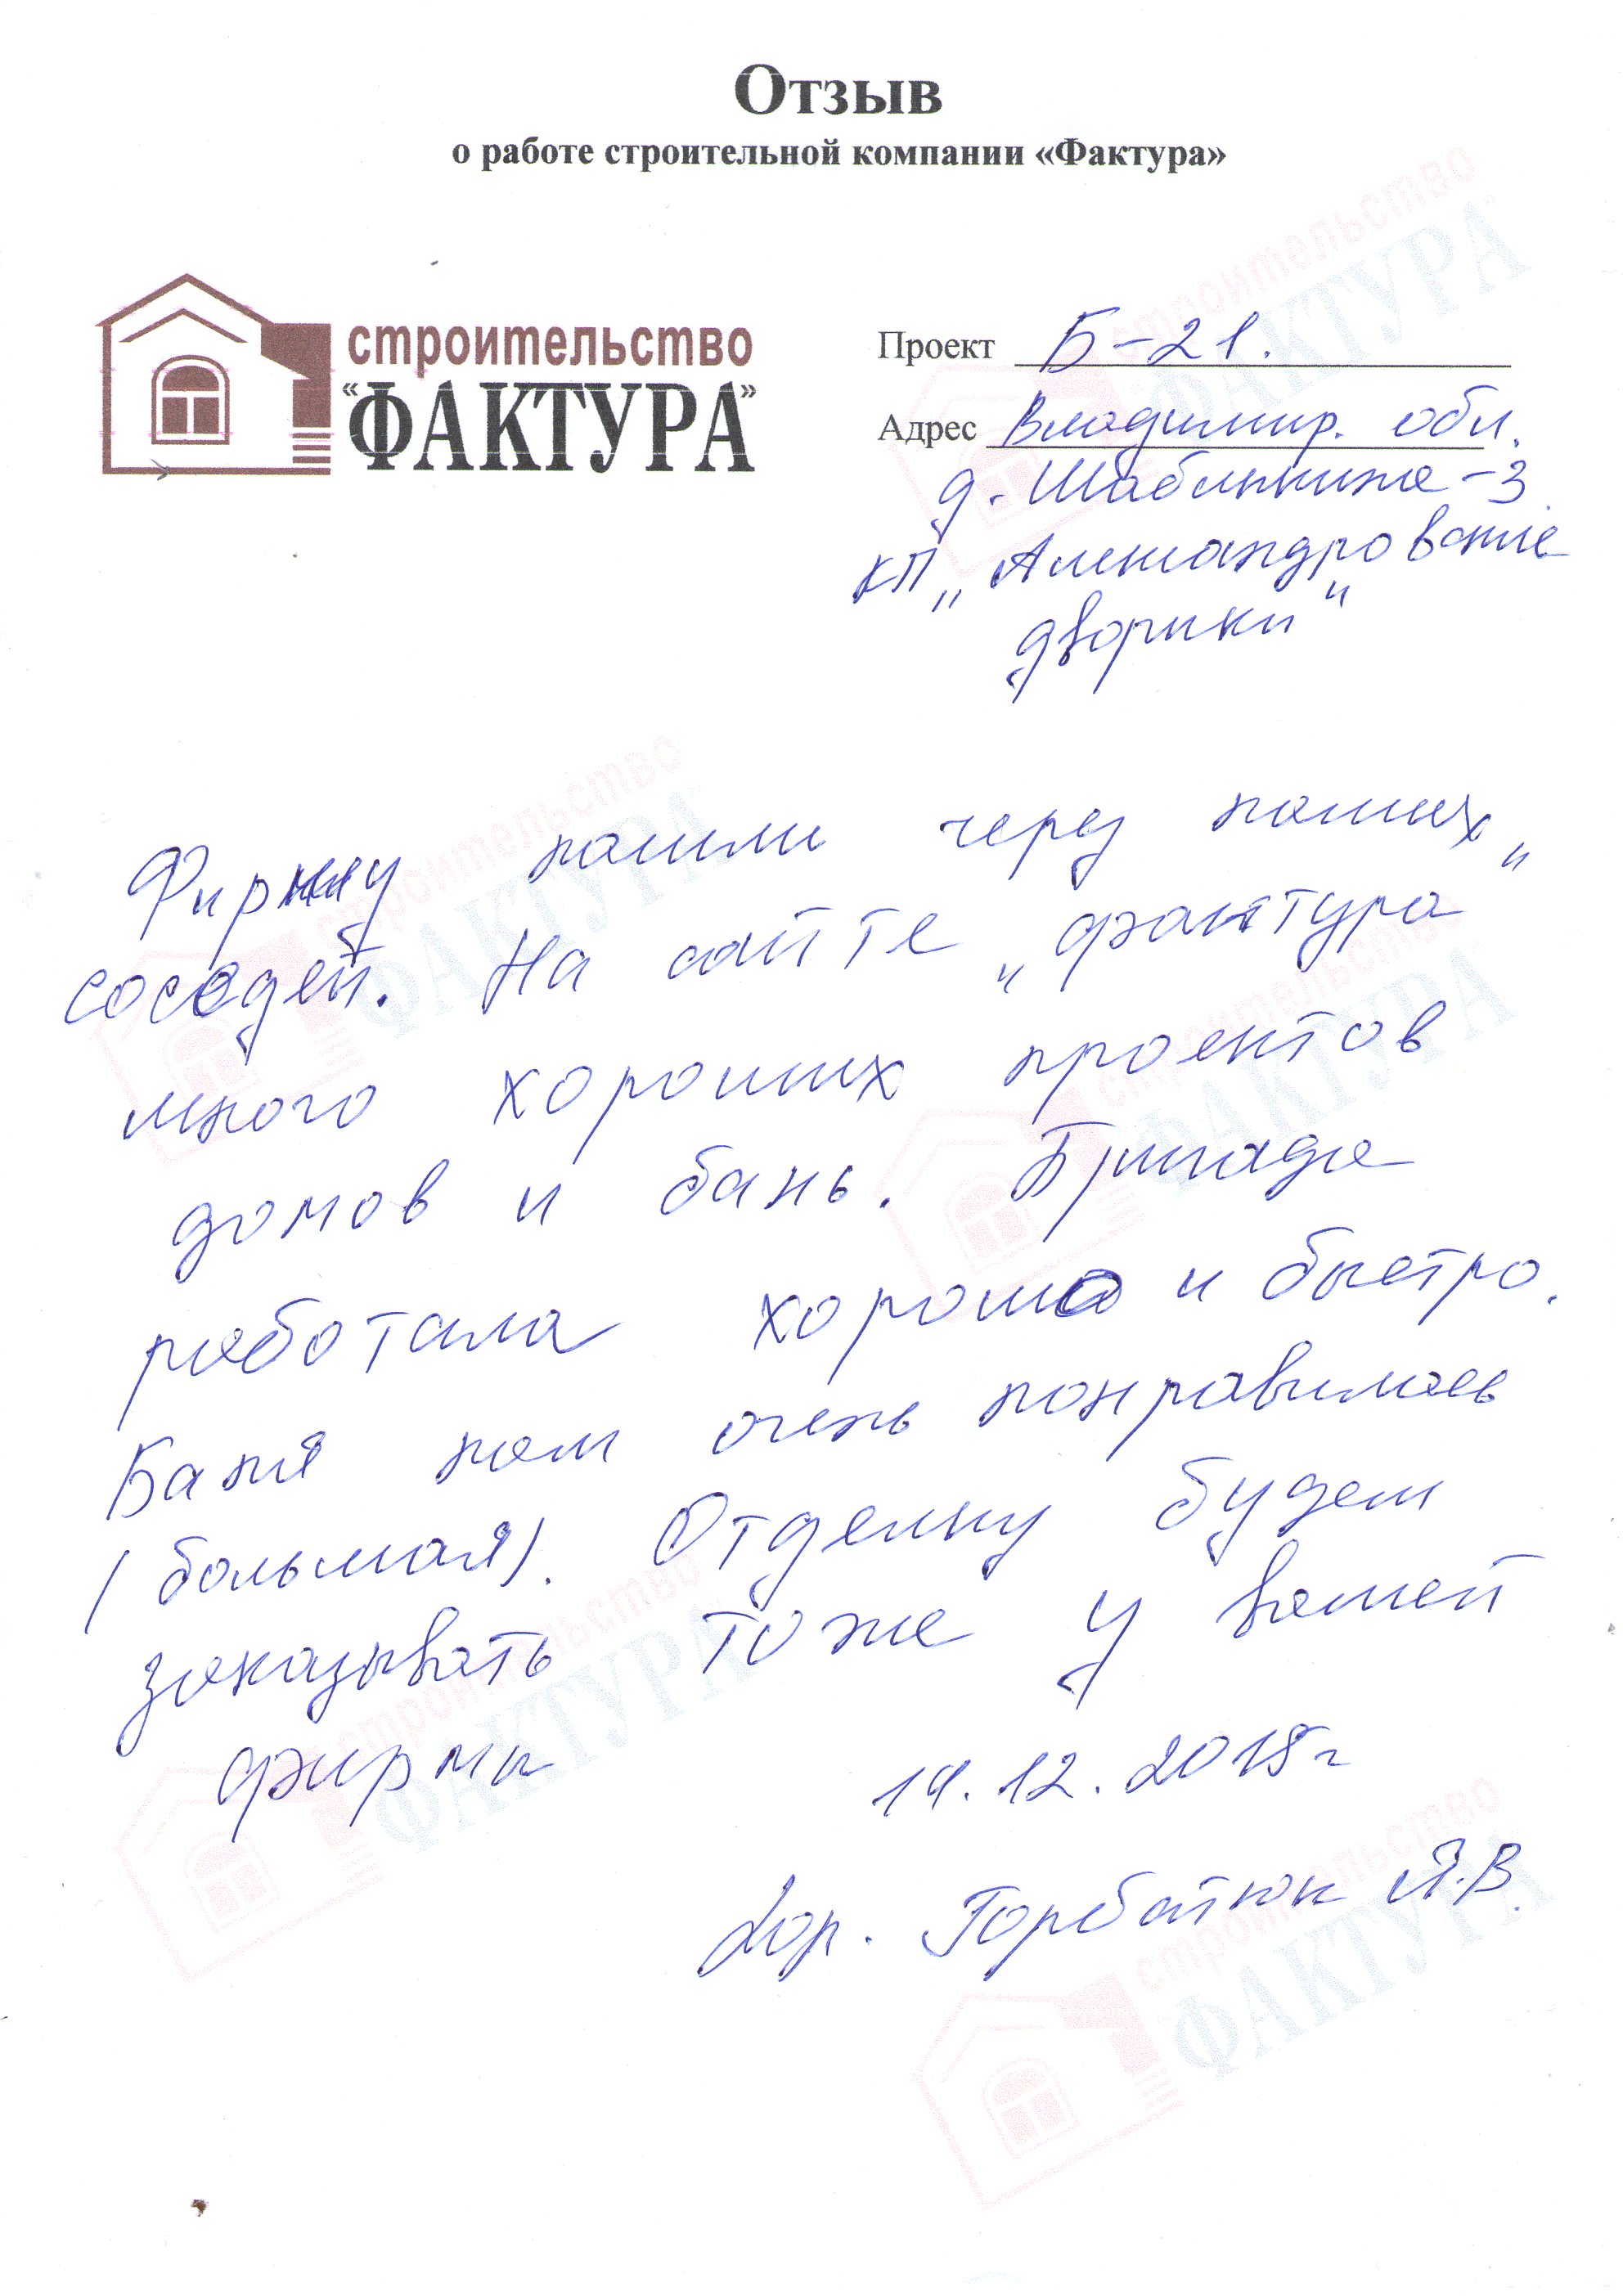 Отзыв
о работе строительной компании «Фактура»
строительство
"ФАКТУРА"
Проект Б-21.
Адрес Владимир. обл.
д. Шаблыкино-3
КП „Александровские
дворики"
Фирму нашли через наших
соседей. На сайте „фактура"
много хороших проектов
домов и бань. Бригада
работала хорошо и быстро.
Баня нам очень понравилась
(большая). Отделку будем
заказывать тоже у вашей
фирмы
14.12.2018г
Горбатюк Я.В.